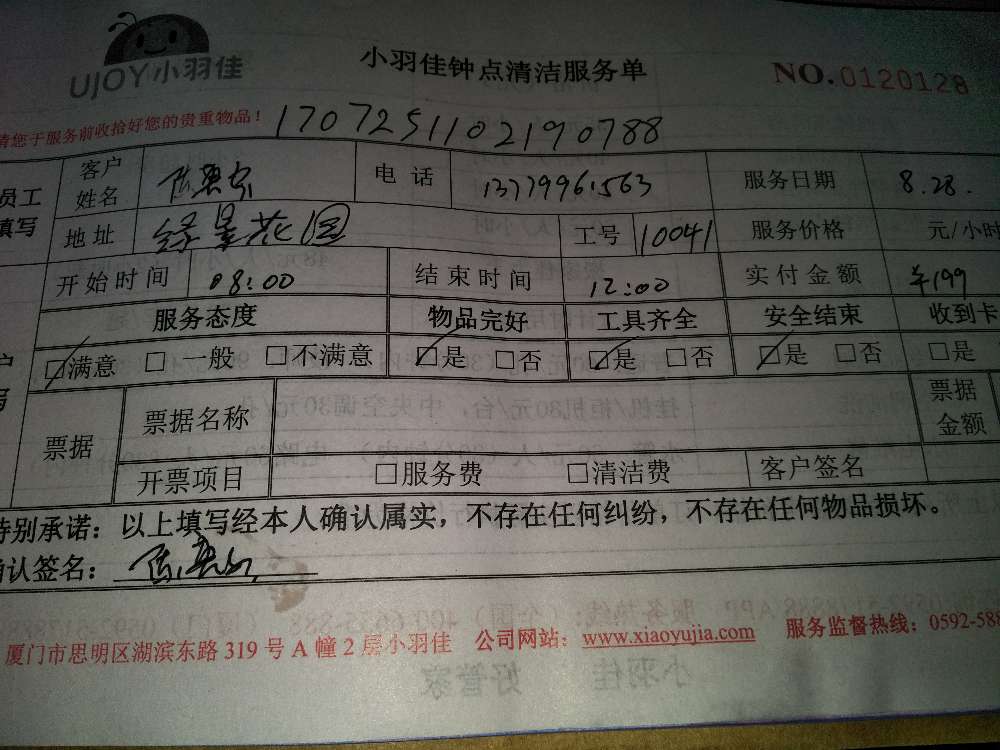 UJOY小羽佳
小羽佳钟点清洁服务单
NO.0120128
请您于服务前收拾好您的贵重物品！
1707251102190788
员工填写
客户姓名
电话 13779961563
服务日期 8.28.
地址 绿景花园
工号 10041
服务价格 元/小时
开始时间 08:00
结束时间 12:00
实付金额 ¥199
服务态度 物品完好 工具齐全 安全结束 收到卡
☑满意 □一般 □不满意 ☑是 □否 ☑是 □否 ☑是 □否 □是
票据 票据名称 票据金额
开票项目 □服务费 □清洁费 客户签名
特别承诺：以上填写经本人确认属实，不存在任何纠纷，不存在任何物品损坏。
确认签名：
厦门市思明区湖滨东路319号A幢2层小羽佳 公司网站：www.xiaoyujia.com 服务监督热线：0592-58